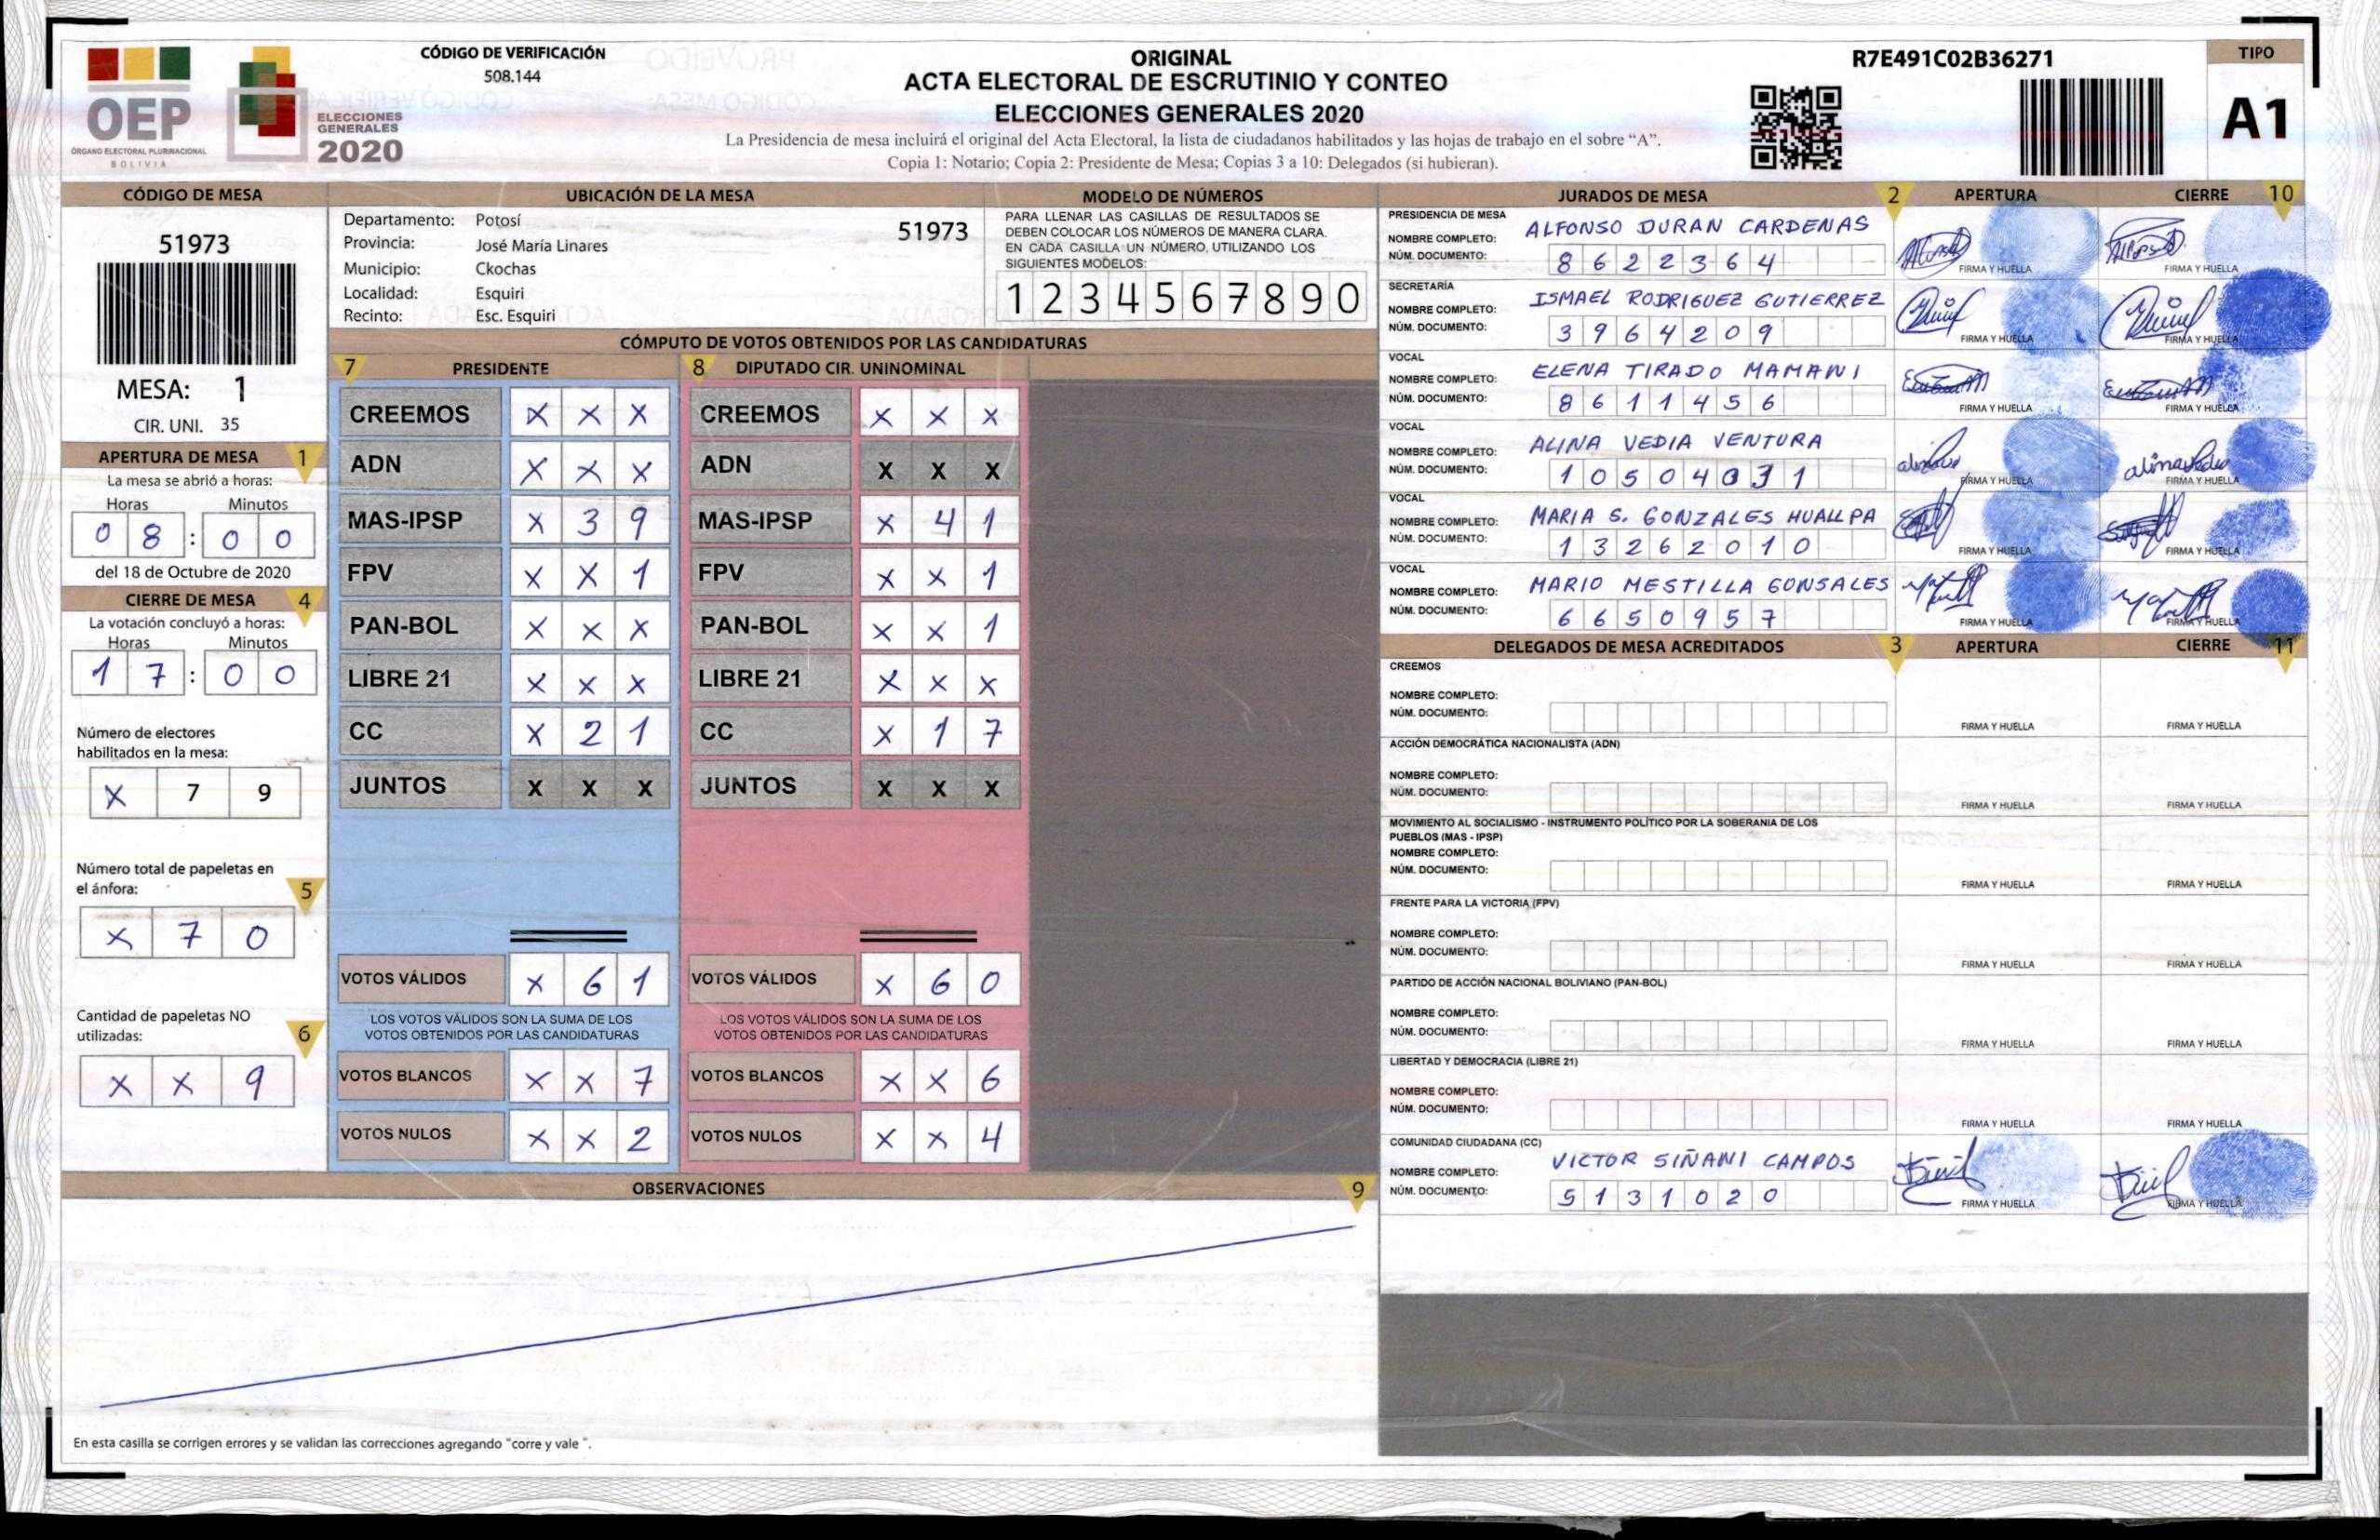 OEP
ÓRGANO ELECTORAL PLURINACIONAL
BOLIVIA
ELECCIONES
GENERALES
2020
CÓDIGO DE VERIFICACIÓN
508.144
ORIGINAL
ACTA ELECTORAL DE ESCRUTINIO Y CONTEO
ELECCIONES GENERALES 2020
La Presidencia de mesa incluirá el original del Acta Electoral, la lista de ciudadanos habilitados y las hojas de trabajo en el sobre “A”.
Copia 1: Notario; Copia 2: Presidente de Mesa; Copias 3 a 10: Delegados (si hubieran).
R7E491C02B36271
TIPO
A1
CÓDIGO DE MESA
51973
MESA: 1
CIR. UNI. 35
APERTURA DE MESA 1
La mesa se abrió a horas:
Horas Minutos
0 8 : 0 0
del 18 de Octubre de 2020
CIERRE DE MESA 4
La votación concluyó a horas:
Horas Minutos
1 7 : 0 0
Número de electores
habilitados en la mesa:
X 7 9
Número total de papeletas en
el ánfora: 5
X 7 0
Cantidad de papeletas NO
utilizadas: 6
X X 9
UBICACIÓN DE LA MESA
Departamento: Potosí
Provincia: José María Linares
Municipio: Ckochas
Localidad: Esquiri
Recinto: Esc. Esquiri
51973
MODELO DE NÚMEROS
PARA LLENAR LAS CASILLAS DE RESULTADOS SE
DEBEN COLOCAR LOS NÚMEROS DE MANERA CLARA.
EN CADA CASILLA UN NÚMERO, UTILIZANDO LOS
SIGUIENTES MODELOS:
1 2 3 4 5 6 7 8 9 0
CÓMPUTO DE VOTOS OBTENIDOS POR LAS CANDIDATURAS
7 PRESIDENTE 8 DIPUTADO CIR. UNINOMINAL
CREEMOS X X X CREEMOS X X X
ADN X X X ADN X X X
MAS-IPSP X 3 9 MAS-IPSP X 4 1
FPV X X 1 FPV X X 1
PAN-BOL X X X PAN-BOL X X 1
LIBRE 21 X X X LIBRE 21 X X X
CC X 2 1 CC X 1 7
JUNTOS X X X JUNTOS X X X
VOTOS VÁLIDOS X 6 1 VOTOS VÁLIDOS X 6 0
LOS VOTOS VÁLIDOS SON LA SUMA DE LOS LOS VOTOS VÁLIDOS SON LA SUMA DE LOS
VOTOS OBTENIDOS POR LAS CANDIDATURAS VOTOS OBTENIDOS POR LAS CANDIDATURAS
VOTOS BLANCOS X X 7 VOTOS BLANCOS X X 6
VOTOS NULOS X X 2 VOTOS NULOS X X 4
OBSERVACIONES 9
En esta casilla se corrigen errores y se validan las correcciones agregando "corre y vale ".
JURADOS DE MESA 2 APERTURA CIERRE 10
PRESIDENCIA DE MESA
NOMBRE COMPLETO: ALFONSO DURAN CARDENAS
NÚM. DOCUMENTO: 8 6 2 2 3 6 4
FIRMA Y HUELLA FIRMA Y HUELLA
SECRETARÍA
NOMBRE COMPLETO: ISMAEL RODRIGUEZ GUTIERREZ
NÚM. DOCUMENTO: 3 9 6 4 2 0 9
FIRMA Y HUELLA FIRMA Y HUELLA
VOCAL
NOMBRE COMPLETO: ELENA TIRADO MAMANI
NÚM. DOCUMENTO: 8 6 1 1 4 5 6
FIRMA Y HUELLA FIRMA Y HUELLA
VOCAL
NOMBRE COMPLETO: ALINA VEDIA VENTURA
NÚM. DOCUMENTO: 1 0 5 0 4 0 3 1
FIRMA Y HUELLA FIRMA Y HUELLA
VOCAL
NOMBRE COMPLETO: MARIA S. GONZALES HUALLPA
NÚM. DOCUMENTO: 1 3 2 6 2 0 1 0
FIRMA Y HUELLA FIRMA Y HUELLA
VOCAL
NOMBRE COMPLETO: MARIO MESTILLA GONSALES
NÚM. DOCUMENTO: 6 6 5 0 9 5 7
FIRMA Y HUELLA FIRMA Y HUELLA
DELEGADOS DE MESA ACREDITADOS 3 APERTURA CIERRE 11
CREEMOS
NOMBRE COMPLETO:
NÚM. DOCUMENTO:
FIRMA Y HUELLA FIRMA Y HUELLA
ACCIÓN DEMOCRÁTICA NACIONALISTA (ADN)
NOMBRE COMPLETO:
NÚM. DOCUMENTO:
FIRMA Y HUELLA FIRMA Y HUELLA
MOVIMIENTO AL SOCIALISMO - INSTRUMENTO POLÍTICO POR LA SOBERANIA DE LOS
PUEBLOS (MAS - IPSP)
NOMBRE COMPLETO:
NÚM. DOCUMENTO:
FIRMA Y HUELLA FIRMA Y HUELLA
FRENTE PARA LA VICTORIA (FPV)
NOMBRE COMPLETO:
NÚM. DOCUMENTO:
FIRMA Y HUELLA FIRMA Y HUELLA
PARTIDO DE ACCIÓN NACIONAL BOLIVIANO (PAN-BOL)
NOMBRE COMPLETO:
NÚM. DOCUMENTO:
FIRMA Y HUELLA FIRMA Y HUELLA
LIBERTAD Y DEMOCRACIA (LIBRE 21)
NOMBRE COMPLETO:
NÚM. DOCUMENTO:
FIRMA Y HUELLA FIRMA Y HUELLA
COMUNIDAD CIUDADANA (CC)
NOMBRE COMPLETO: VICTOR SIÑANI CAMPOS
NÚM. DOCUMENTO: 5 1 3 1 0 2 0
FIRMA Y HUELLA FIRMA Y HUELLA